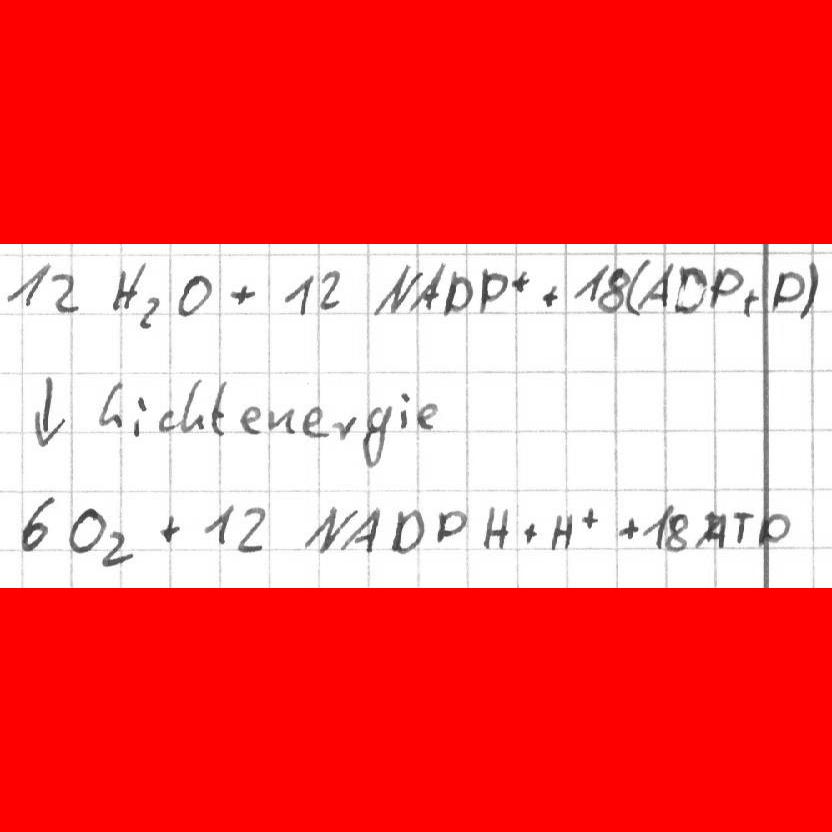 12 H₂O + 12 NADP⁺ + 18(ADP+P)
↓ Lichtenergie
6 O₂ + 12 NADPH+H⁺ +18 ATP